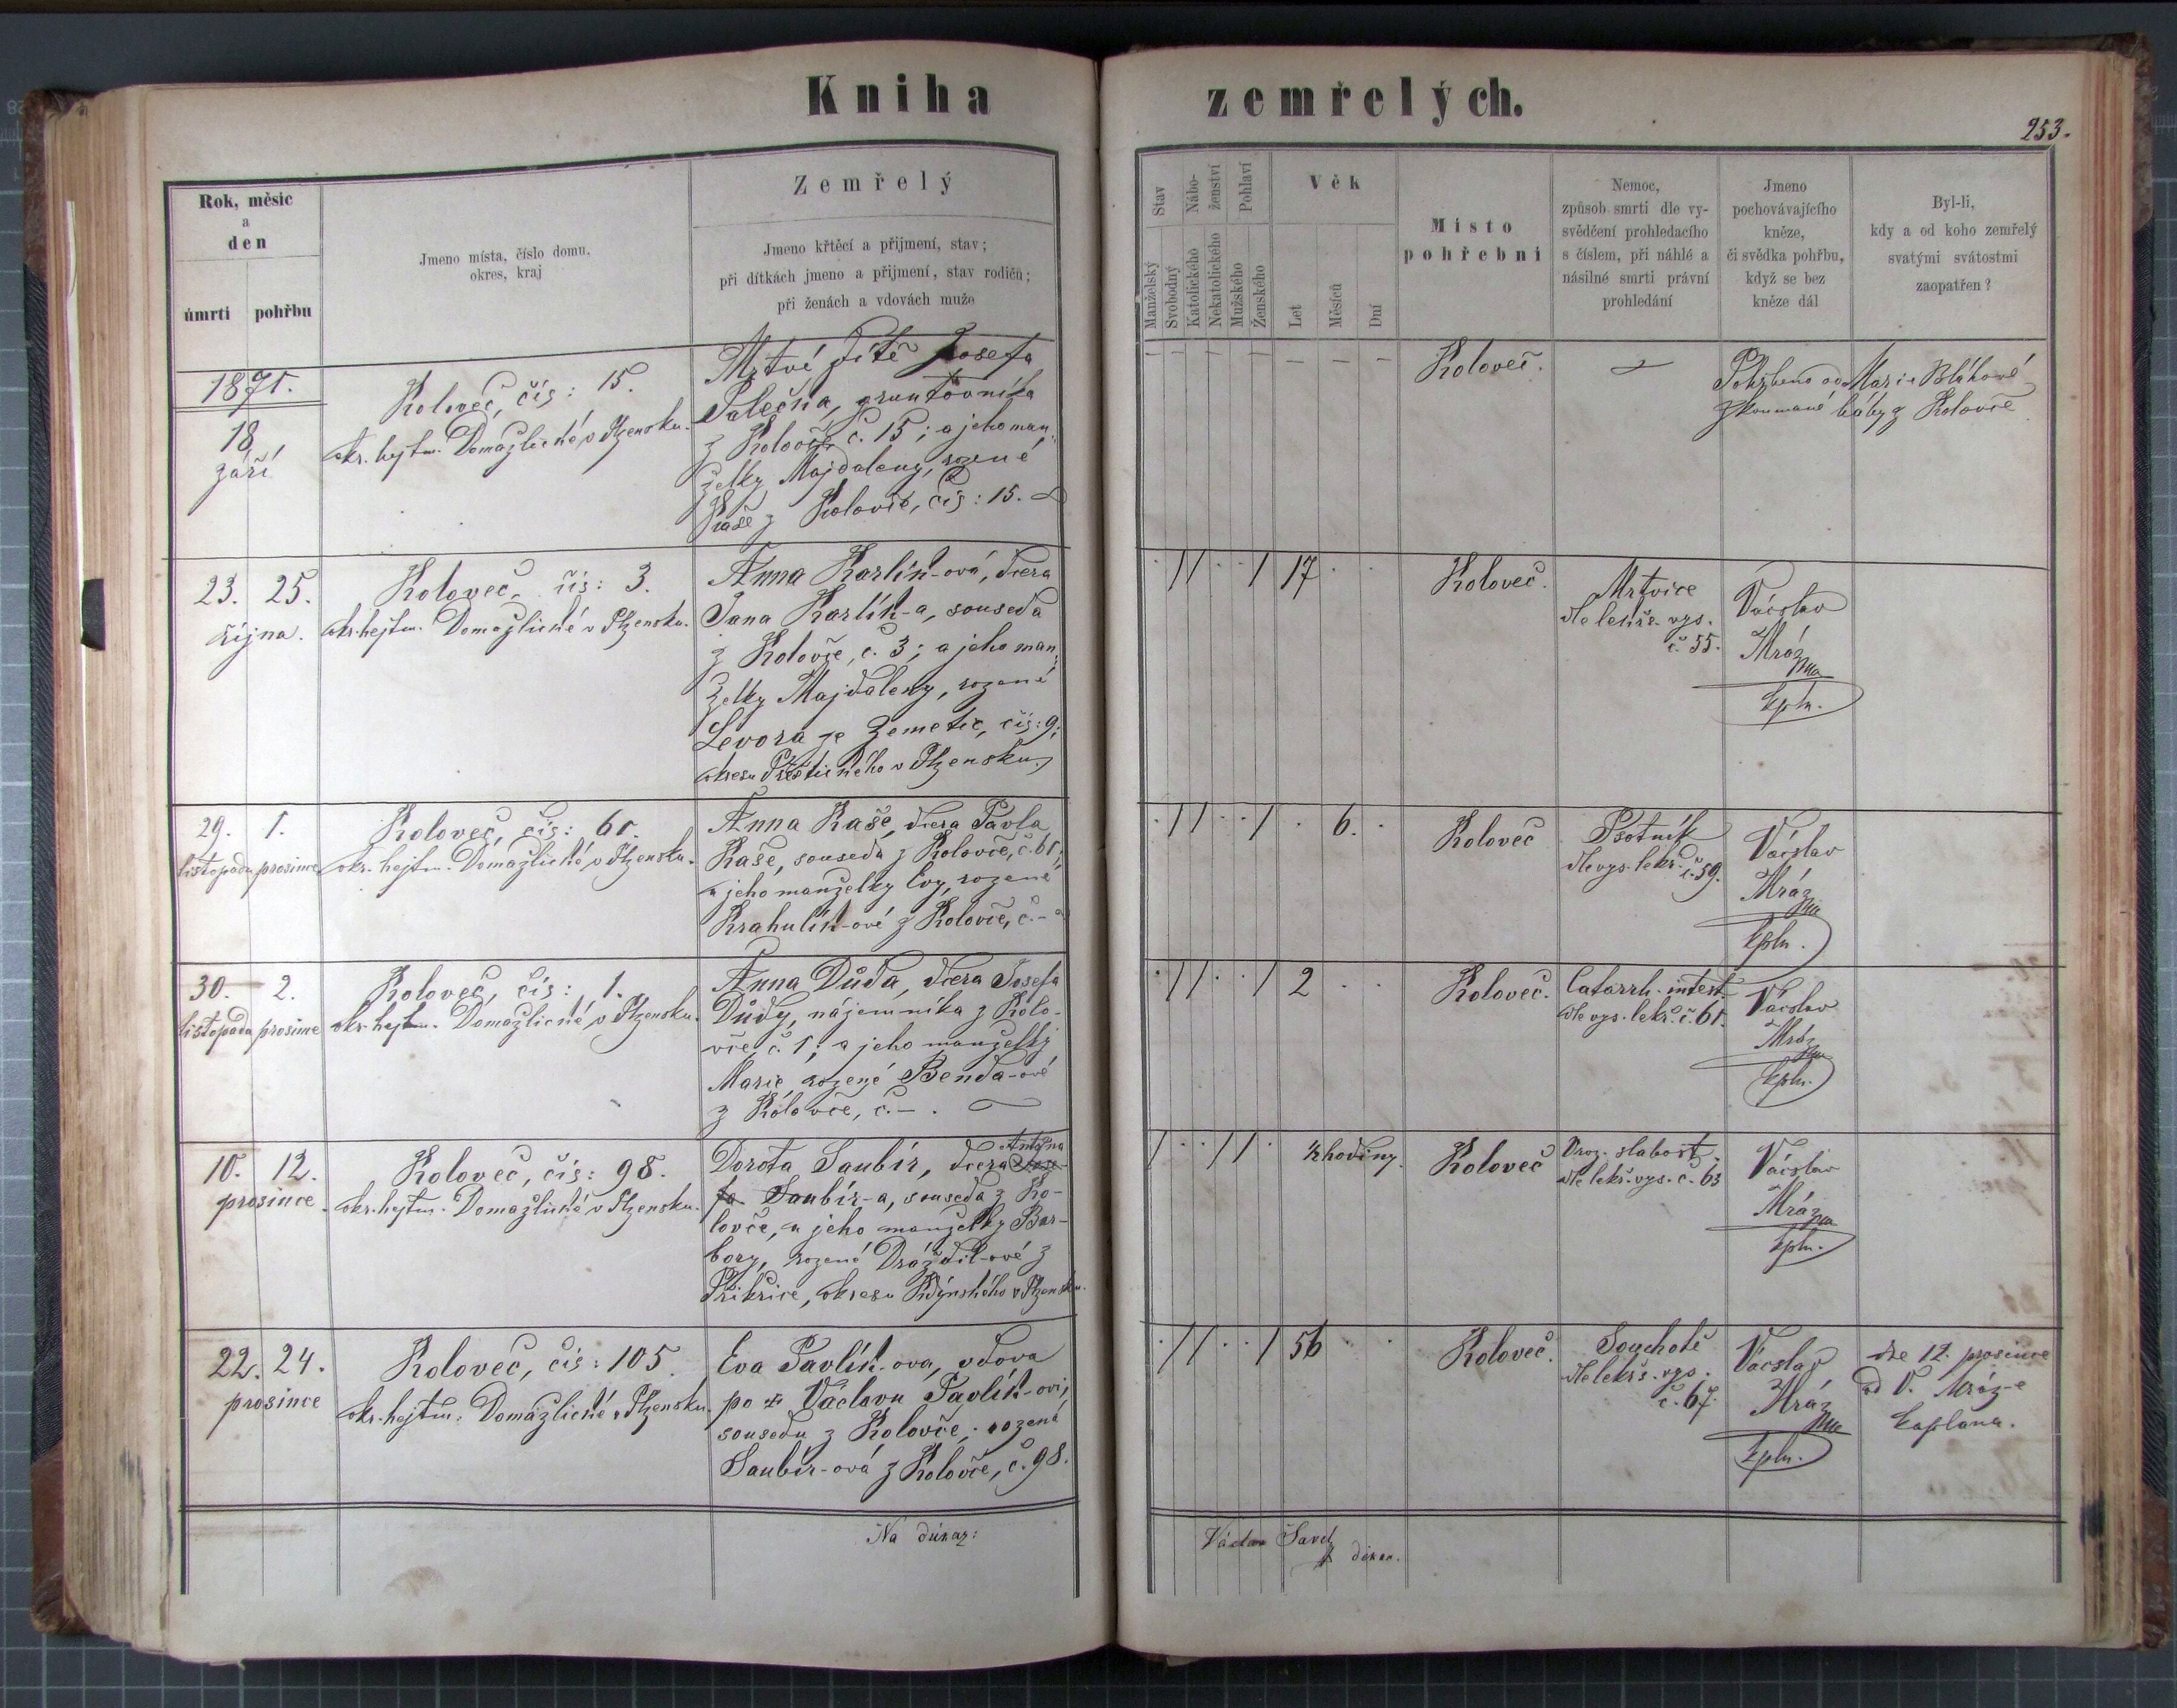 Kniha
zemřelých.
253.
Rok, měsíc
a
den
úmrtí
pohřbu
Jmeno místa, číslo domu,
okres, kraj
Zemřelý
Jmeno křtěcí a přijmení, stav;
při dítkách jmeno a přijmení, stav rodičů;
při ženách a vdovách muže
Stav
Manželský
Svobodný
Nábo-
ženství
Katolického
Nekatolického
Pohlaví
Mužského
Ženského
Věk
Let
Měsíců
Dní
Místo
pohřební
Nemoc,
způsob smrti dle vy-
svědčení prohledacího
s číslem, při náhlé a
násilné smrti právní
prohledání
Jmeno
pochovávajícího
kněze,
či svědka pohřbu,
když se bez
kněze dál
Byl-li,
kdy a od koho zemřelý
svatými svátostmi
zaopatřen?
1871.
18
září
Koloveč, čís: 15.
okr. hejtm. Domažlické v Plzensku.
Mrtvé dítě Josefa
Palečka, gruntovníka
z Kolovče č. 15; a jeho man-
želky Majdaleny, rozené
Kaše z Kolovče, čís: 15.
— — — — — — — — —
Koloveč.
Pohřbeno od Marie Bláhové
zkoumané báby z Kolovče
23. 25.
října.
Koloveč, čís: 3.
okr. hejtm. Domažlické v Plzensku.
Anna Karlík-ová, dcera
Jana Karlík-a, souseda
z Kolovče, č. 3; a jeho man-
želky Majdaleny, rozené
Levora ze Zemětic, čís: 9;
okresu Přeštického v Plzensku.
. 1 1 . . 1 17 . .
Koloveč.
Mrtvice
dle lekřs. vys.
č. 55.
Václav
Mráz
kpln.
29. 1.
listopadu prosince
Koloveč, čís: 61.
okr. hejtm. Domažlické v Plzensku.
Anna Kaše, dcera Pavla
Kaše, souseda z Kolovče, č. 61;
a jeho manželky Evy, rozené
Krahulík-ové z Kolovče, č. –
. 1 1 . . 1 . 6. .
Koloveč
Psotník
dle vys. lekř. č. 59.
Václav
Mráz
kpln.
30. 2.
listopada prosince
Koloveč, čís: 1.
okr. hejtm. Domažlické v Plzensku.
Anna Důda, dcera Josefa
Důdy, nájemníka z Kolo-
vče, č. 1; a jeho manželky
Marie, rozené Benda-ové
z Kolovče, č. – .
. 1 1 . . 1 2 . .
Koloveč.
Catarrh. intest.
dle vys. lekř. č. 61.
Václav
Mráz
kpln.
10. 12.
prosince.
Koloveč, čís: 98.
okr. hejtm. Domažlické v Plzensku.
Antonína
Dorota Saubír, dcera Jose-
fa Saubír-a, souseda z Ko-
lovče, a jeho manželky Bar-
bory, rozené Dráždil-ové z
Přikřice, okresu Kdýnského v Plzensku.
1 . . 1 1 . ½ hodiny.
Koloveč
Vroz. slabost.
dle lekř. vys. č. 63
Václav
Mráz
kpln.
22. 24.
prosince
Koloveč, čís: 105
okr. hejtm. Domažlické v Plzensku.
Eva Pavlík-ova, vdova
po Václavu Pavlík-ovi,
sousedu z Kolovče, rozená
Saubír-ová z Kolovče, č. 98.
. 1 1 . . 1 56 . .
Koloveč.
Souchotě
dle lekřs. vys.
č. 67.
Václav
Mráz
kpln.
dne 12. prosince
od V. Mráz-e
kaplana.
Na důkaz:
Václav